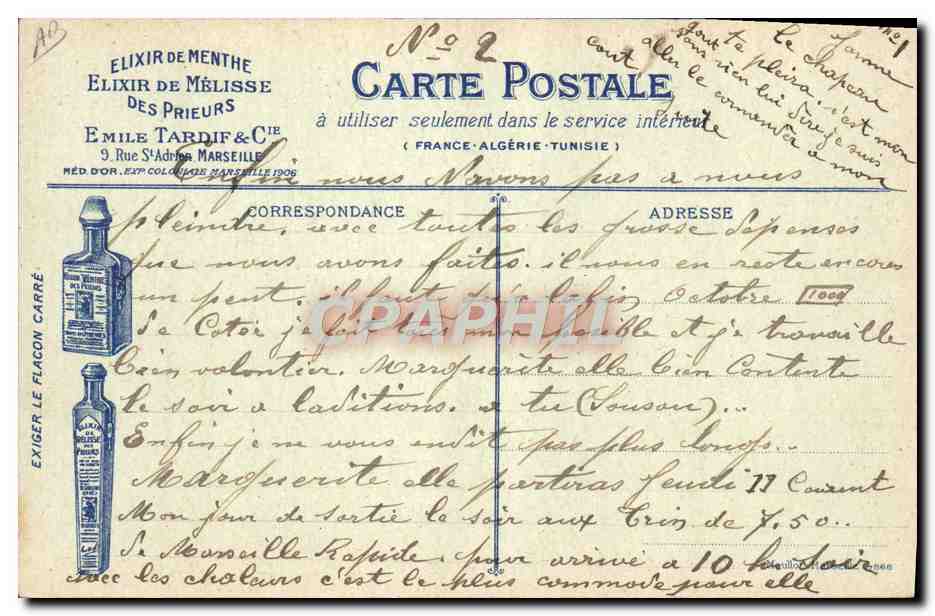 AB
No 2
no 1
ELIXIR DE MENTHE
ELIXIR DE MÉLISSE
DES PRIEURS
EMILE TARDIF & CIE
9, Rue St Adrien, MARSEILLE
MÉD. D'OR. EXP. COLONIALE MARSEILLE 1906
CARTE POSTALE
à utiliser seulement dans le service intérieur
(FRANCE-ALGÉRIE-TUNISIE)
le chapeau
ta pleira. c'est mon
gout sans rien lui dire je suis
aller le commander a mon
cout
Enfin nous Navons pas a nous
CORRESPONDANCE
ADRESSE
pleindre. avec toutes les grosse dépenses
que nous avons faites. il nous en reste encores
un peut. il faut Octobre 1000
de Coter je fait tous mon possible et je travaille
bien volontier. Marguerite elle bien Contente
le soir a laditions. a tu (Sousou)...
Enfin je ne vous endit pas plus longs..
Marguerite elle partiras Jeudi 11 Courent
Mon jour de sortie le soir aux trin de 7.50..
de Marseille Rapide. pour arrivé a 10 h
avec les chaleurs c'est le plus commode pour elle
EXIGER LE FLACON CARRÉ
ELIXIR MENTHE
DES PRIEURS
ELIXIR
DE
MÉLISSE
DES
PRIEURS
CPAPHIL